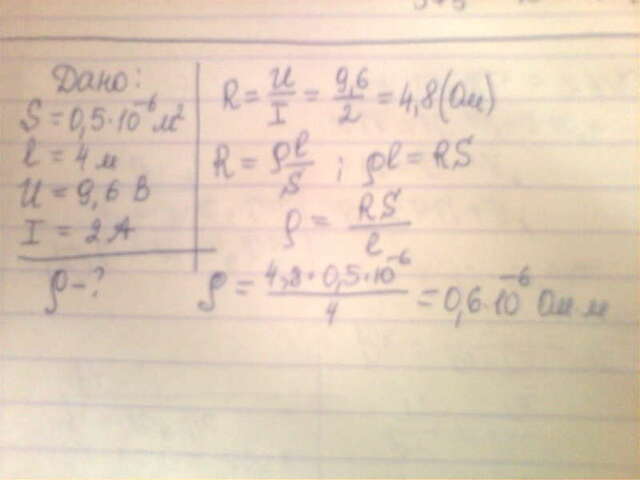 Дано:
S = 0,5·10⁻⁶ м²
l = 4 м
U = 9,6 В
I = 2 А
ρ - ?
R = U/I = 9,6/2 = 4,8 (Ом)
R = ρl/S ; ρl = RS
ρ = RS/l
ρ = 4,8·0,5·10⁻⁶/4 = 0,6·10⁻⁶ Ом·м